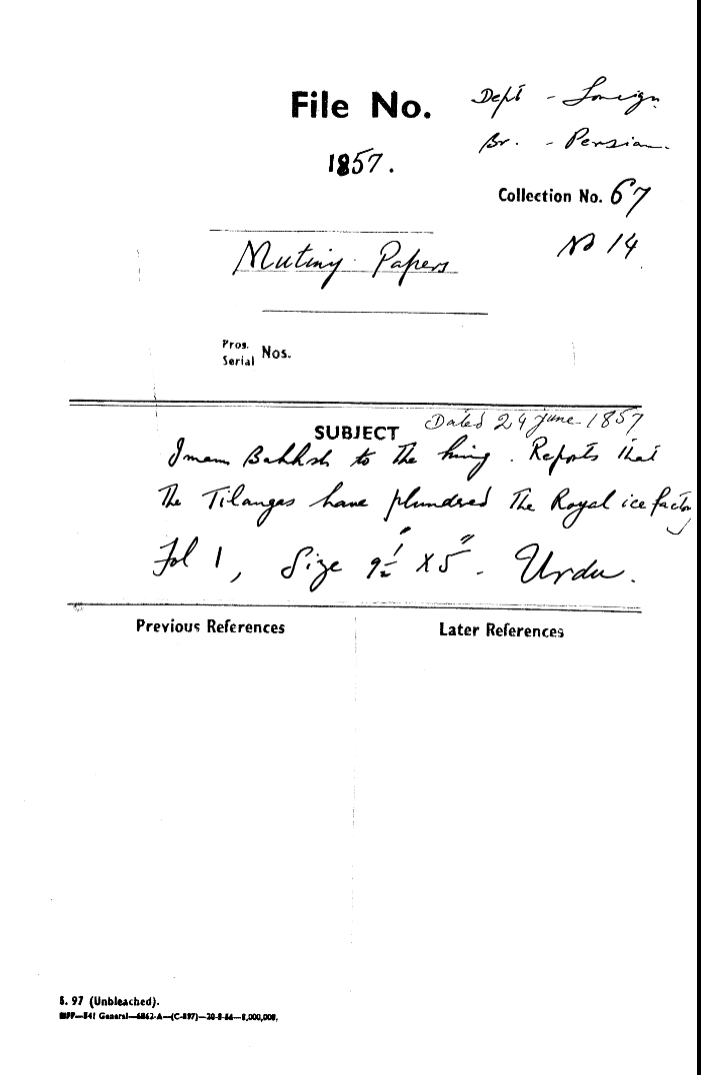 File No.
Dept - Foreign
Br. - Persian.
1857.
Collection No. 67
No 14
Mutiny Papers
Pros.
Serial Nos.
Dated 24 June 1857
SUBJECT
Imam Bakhsh to the king. Reports that
the Tilangas have plundered the Royal ice factory
Fol 1, Size 9½" X 5" - Urdu.
Previous References
Later References
S. 97 (Unbleached).
General—6862-A—(C-897)—20-8-66—5,000,000.